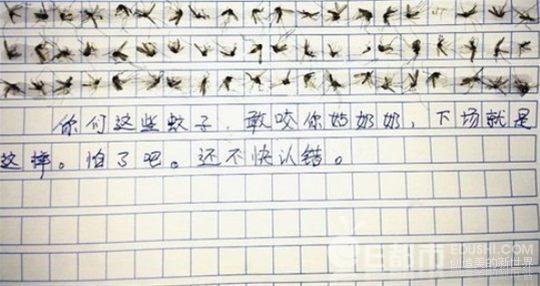 你们这些蚊子，敢咬你姑奶奶，下场就是
这样。怕了吧。还不快认错。
E都市
EDUSHI.COM
创造美的新世界